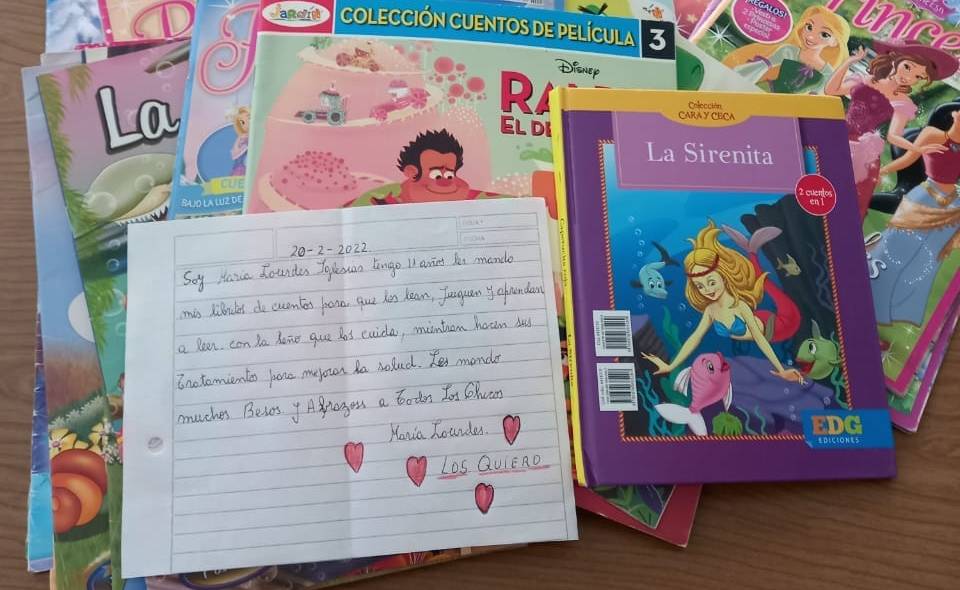 JaRdín
COLECCIÓN CUENTOS DE PELÍCULA 3
DISNEY
RA
EL DE
La
CUE
BAJO LA LUZ DE
REGALOS!
Colección
CARA Y CECA
La Sirenita
2 cuentos
en 1
EDG
EDICIONES
FECHA
20-2-2022
Soy María Lourdes Iglesias tengo 11 años les mando
mis libritos de cuentos para que los lean, Jueguen y aprendan
a leer. con la seño que los cuida, mientran hacen sus
Tratamientos para mejorar la salud. Les mando
muchos Besos y Abrazoss a Todos Los Chicos
María Lourdes.
LOS QUIERO